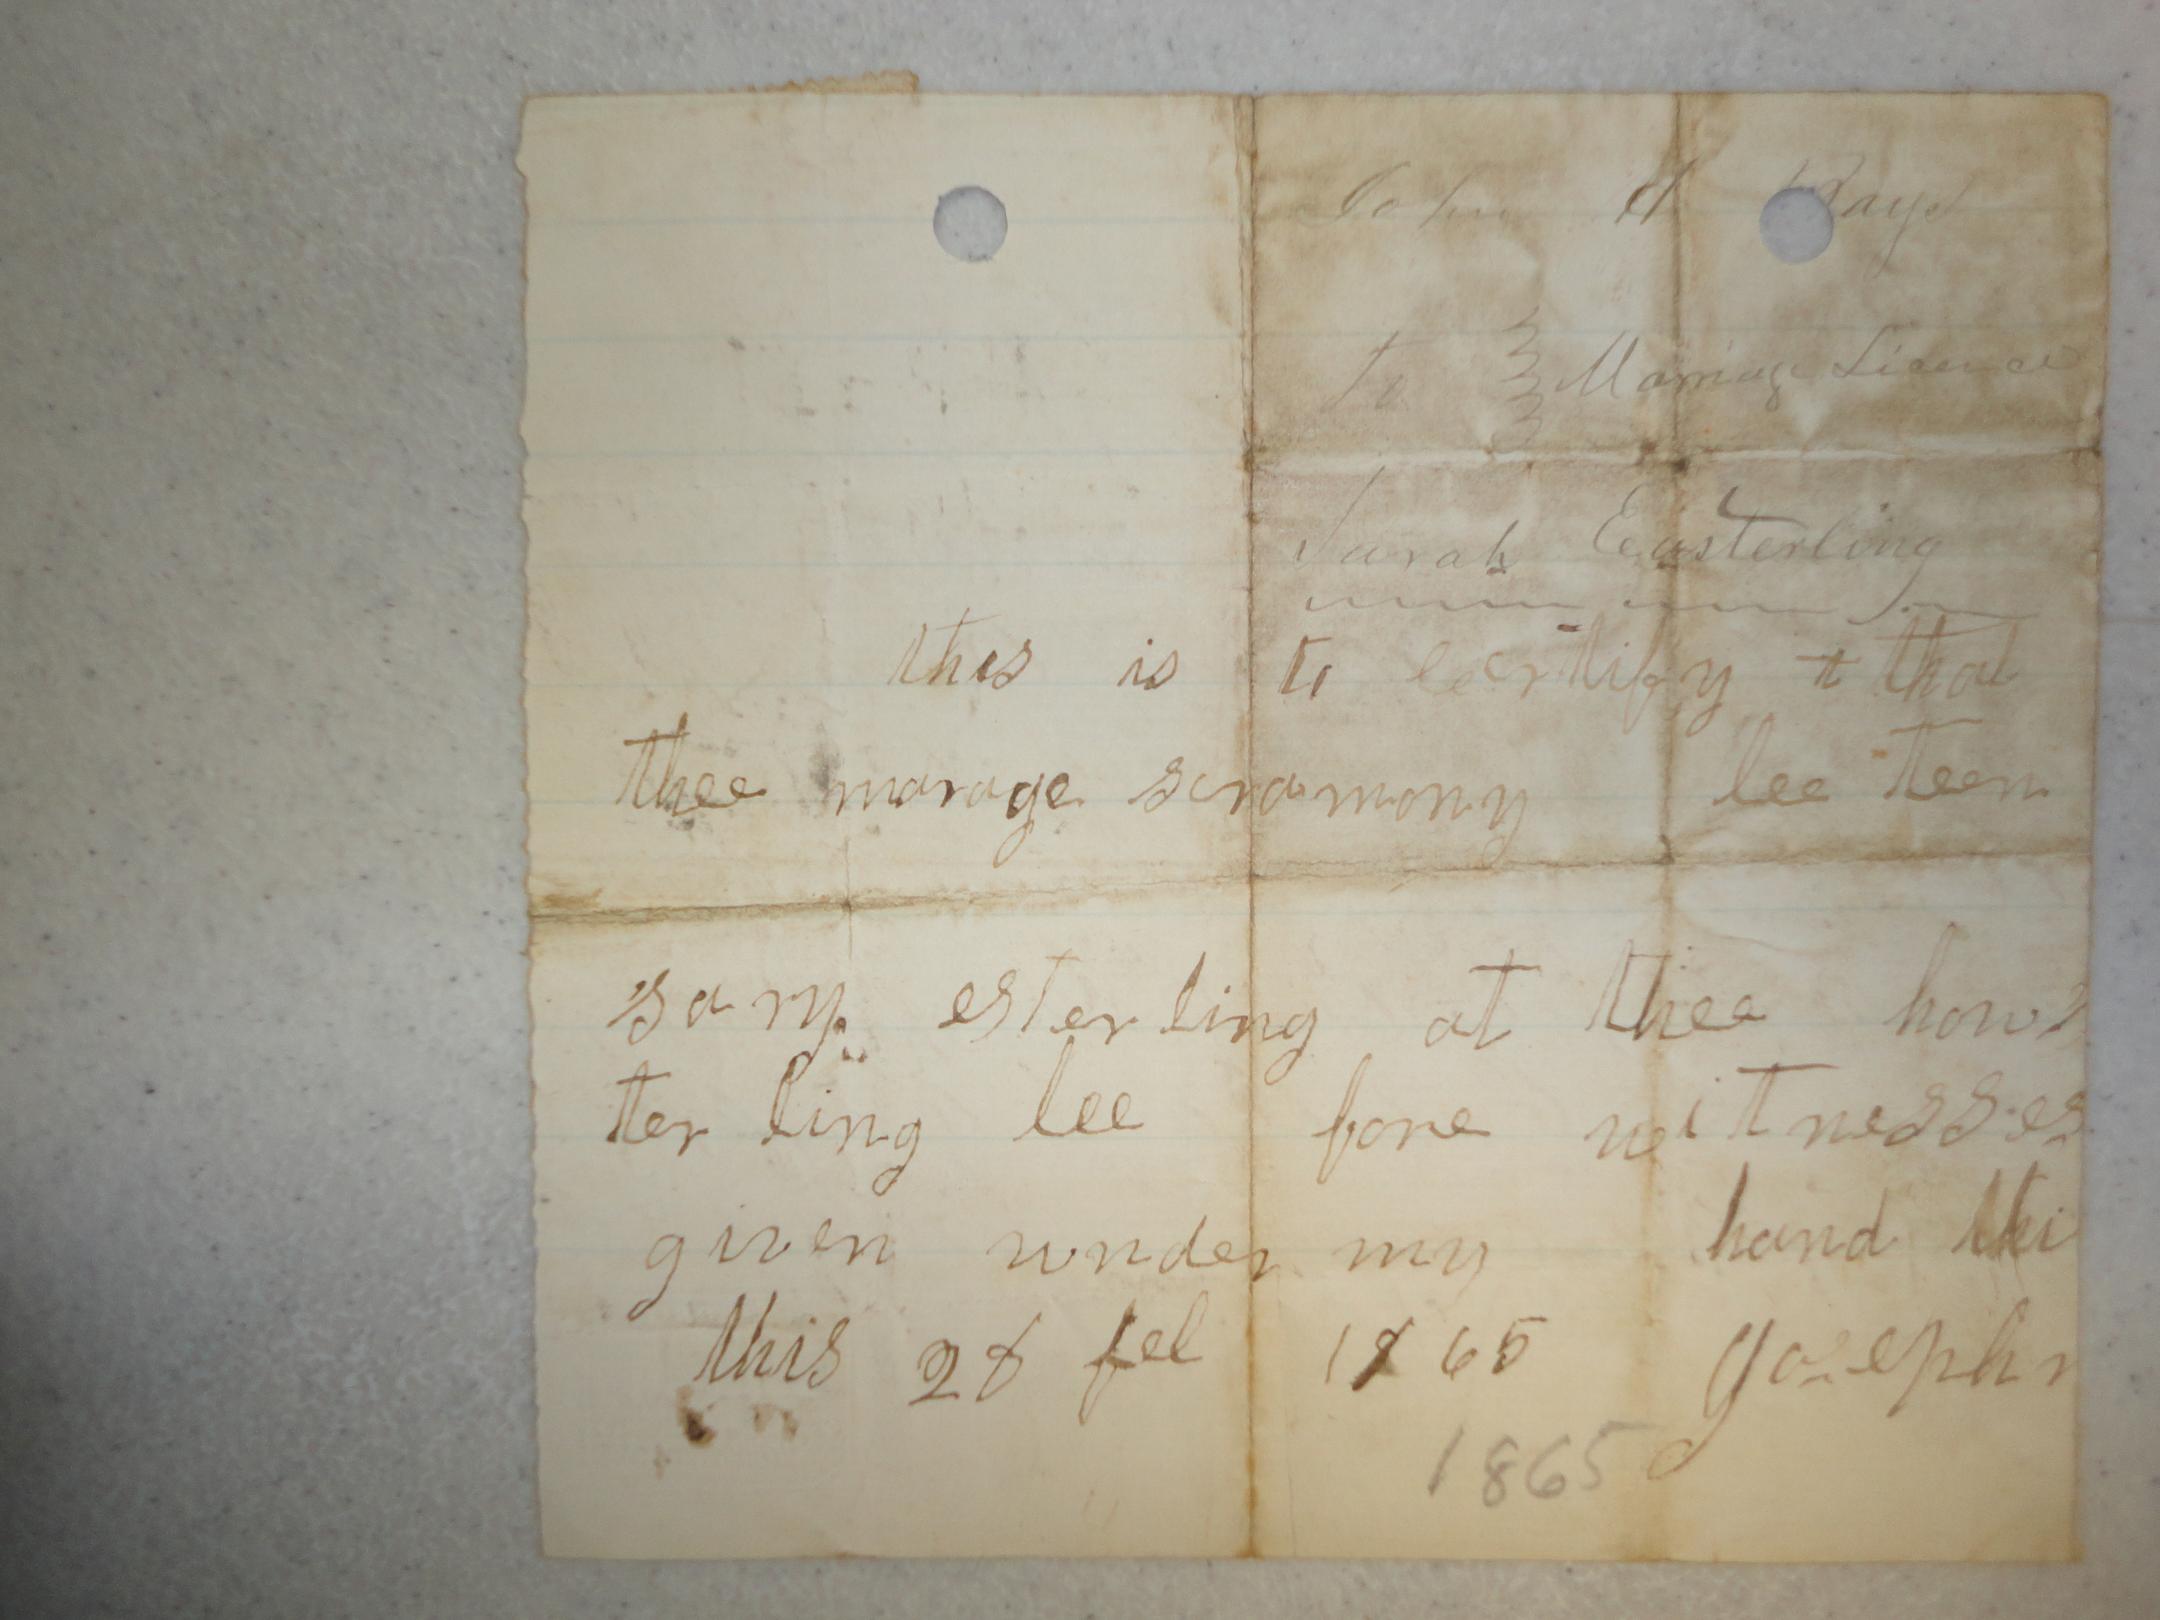 John H Bayd
to Marriage Licence
Sarah Easterling
this is to certify t that
thee marage scramony lee teen
sary esterling at thee hows
ter ling lee fore witnesses
given under my hand thi
this 28 feb 1865 Joseph
1865